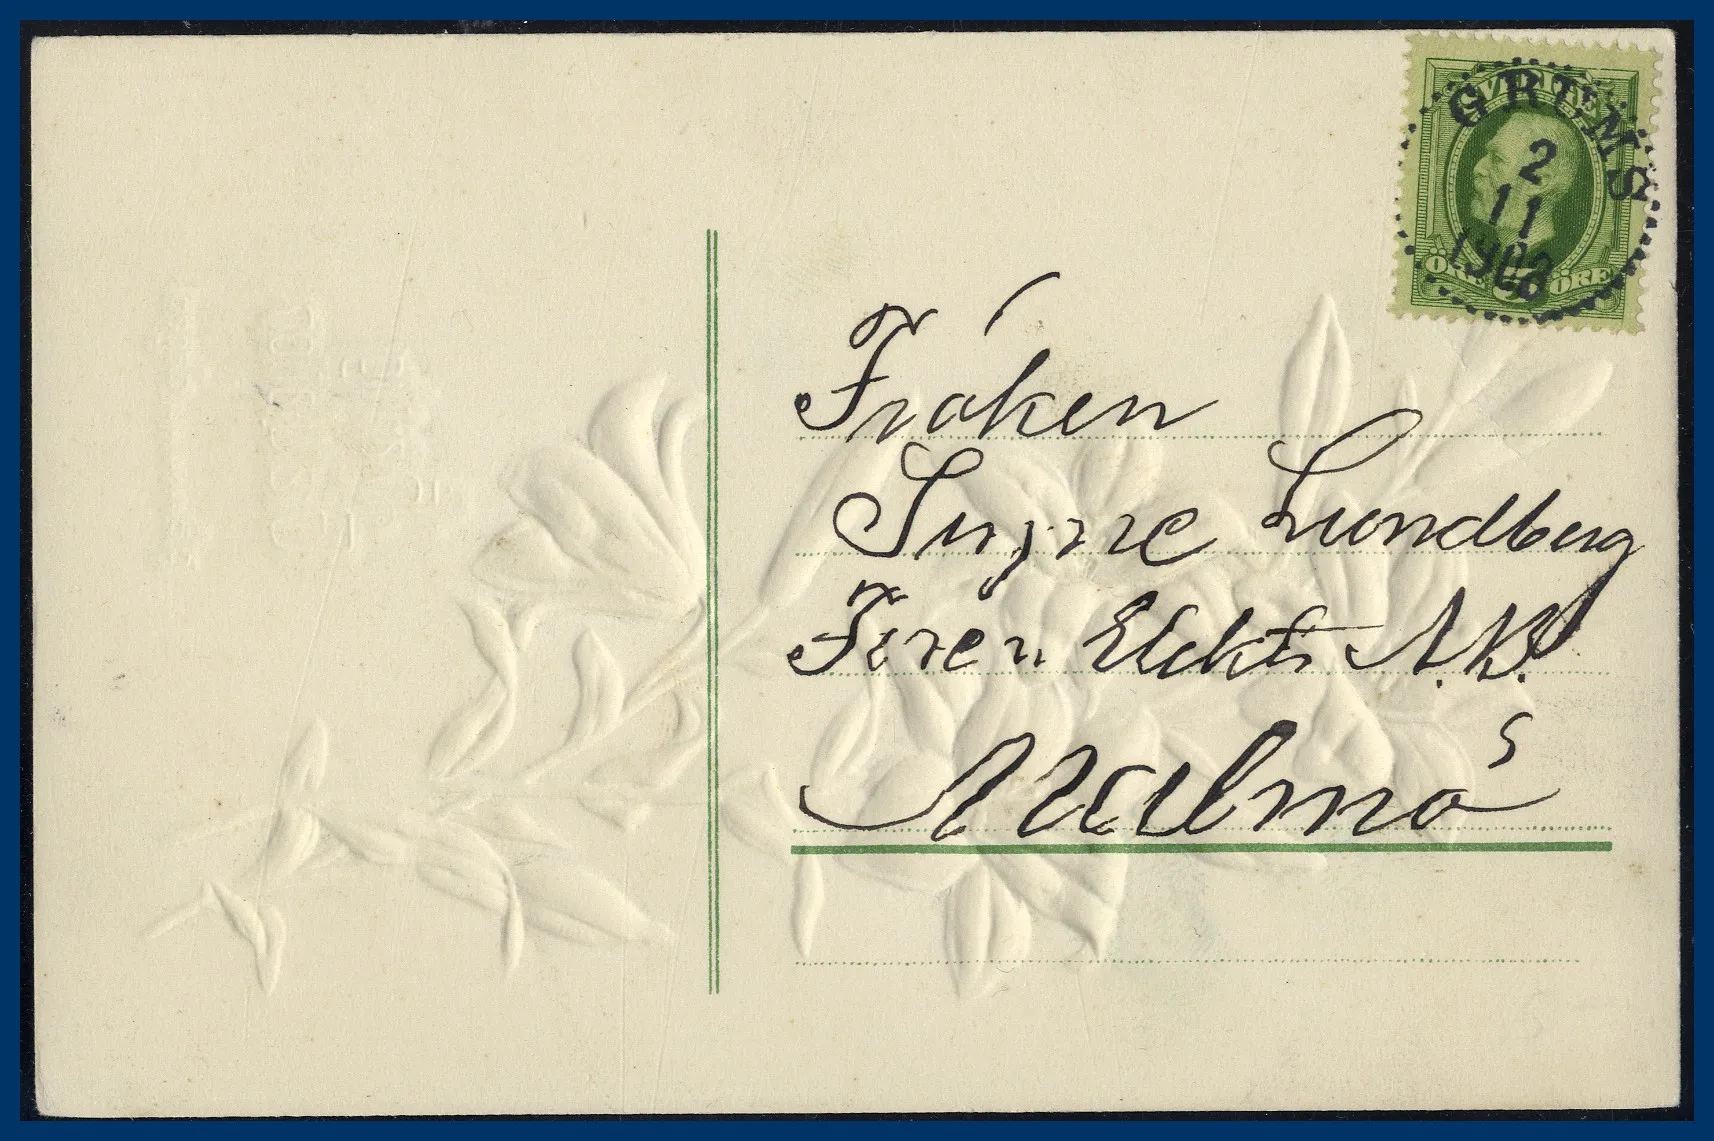 SVERIGE
GRUMS
2
11
1908
ÖRE 5 ÖRE
Fröken
Signe Lundberg
Elektr A.B.
Malmö